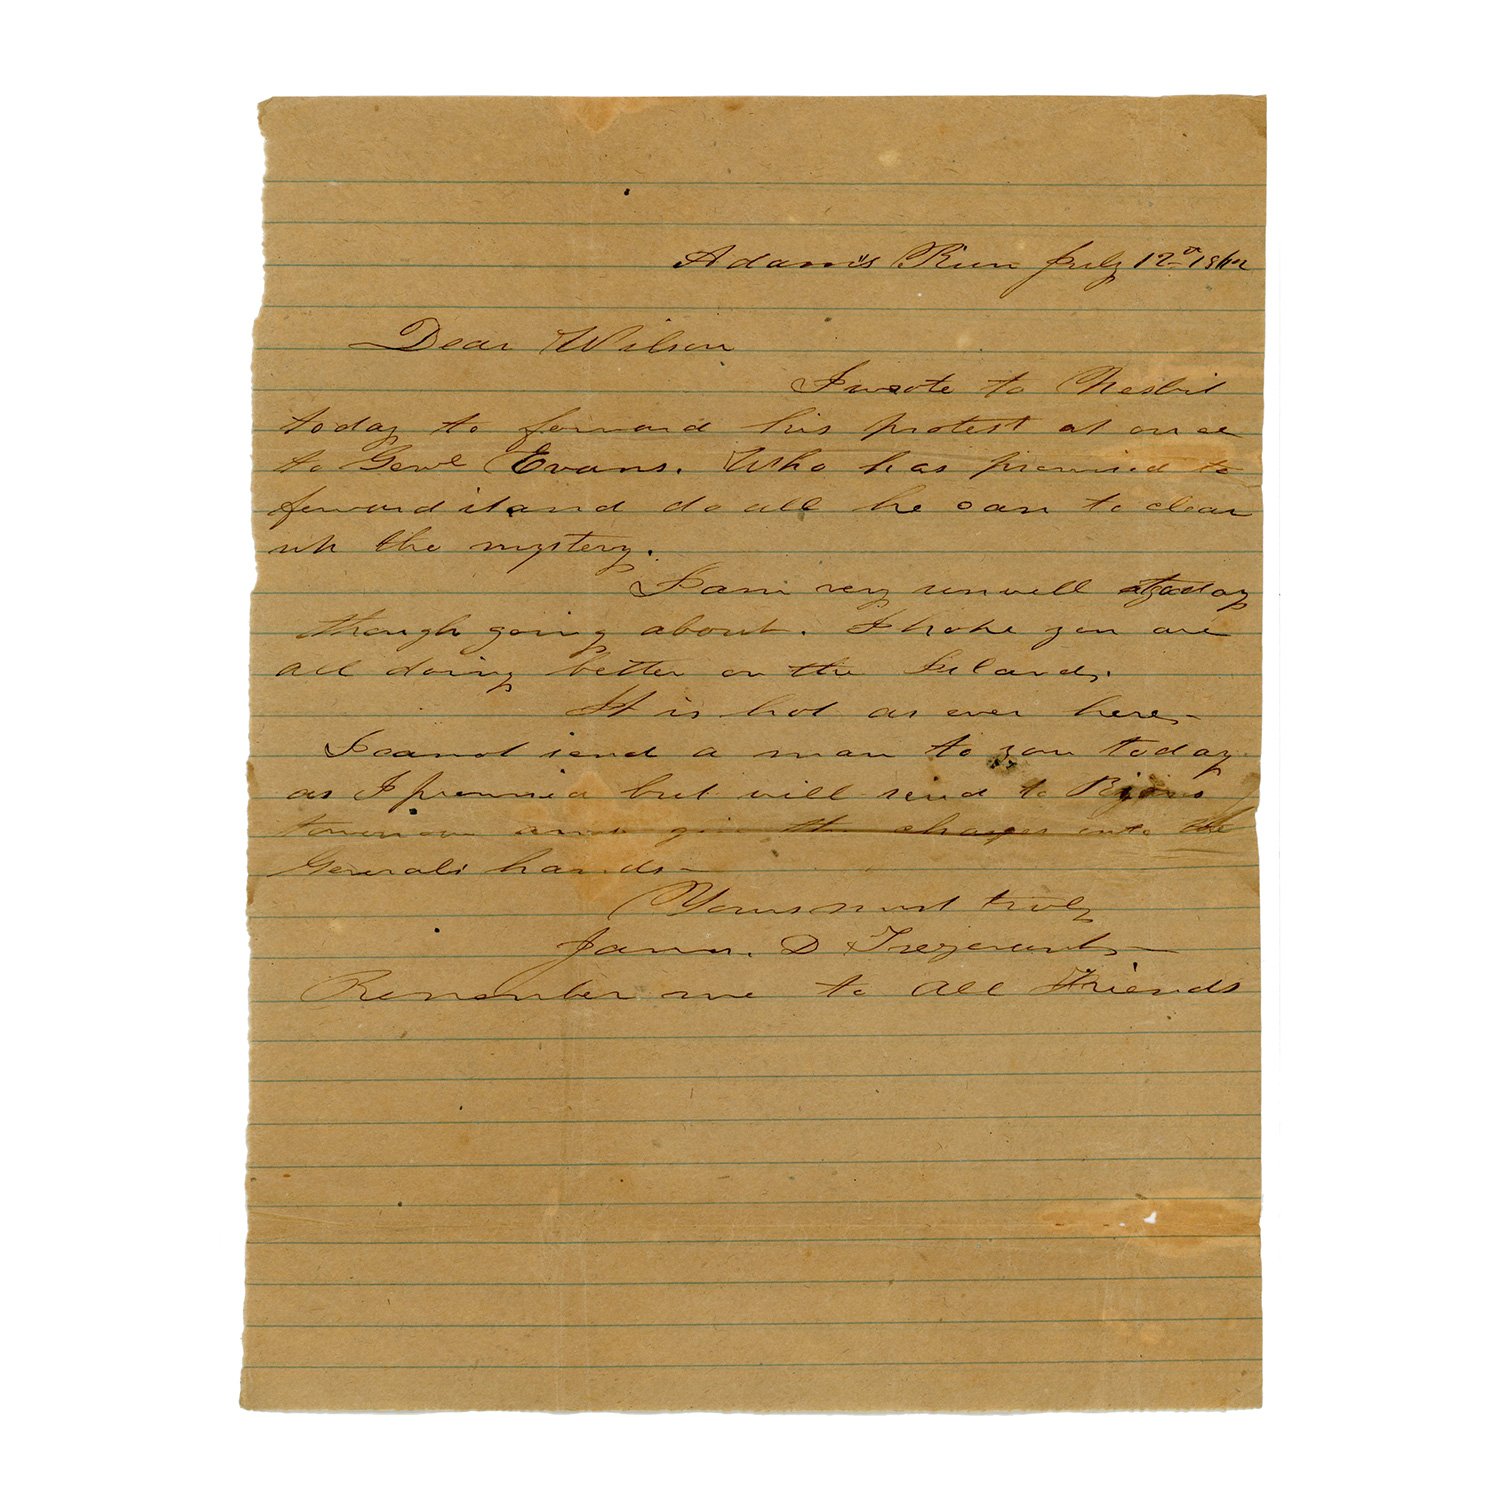 Adams Run July 12th 1862
Dear Wilson
I wrote to Nesbit
today to forward his protest at once
to Genl Evans. Who has promised to
forward it and do all he can to clear
up the mystery.
I am very unwell today
though going about. I hope you are
all doing better on the Islands.
It is hot as ever here—
I cannot send a man to you today
as I promised but will send to
tomorrow and give the charges into the
Generals hands—
Yours most truly
James. D Trezevant—
Remember me to all Friends